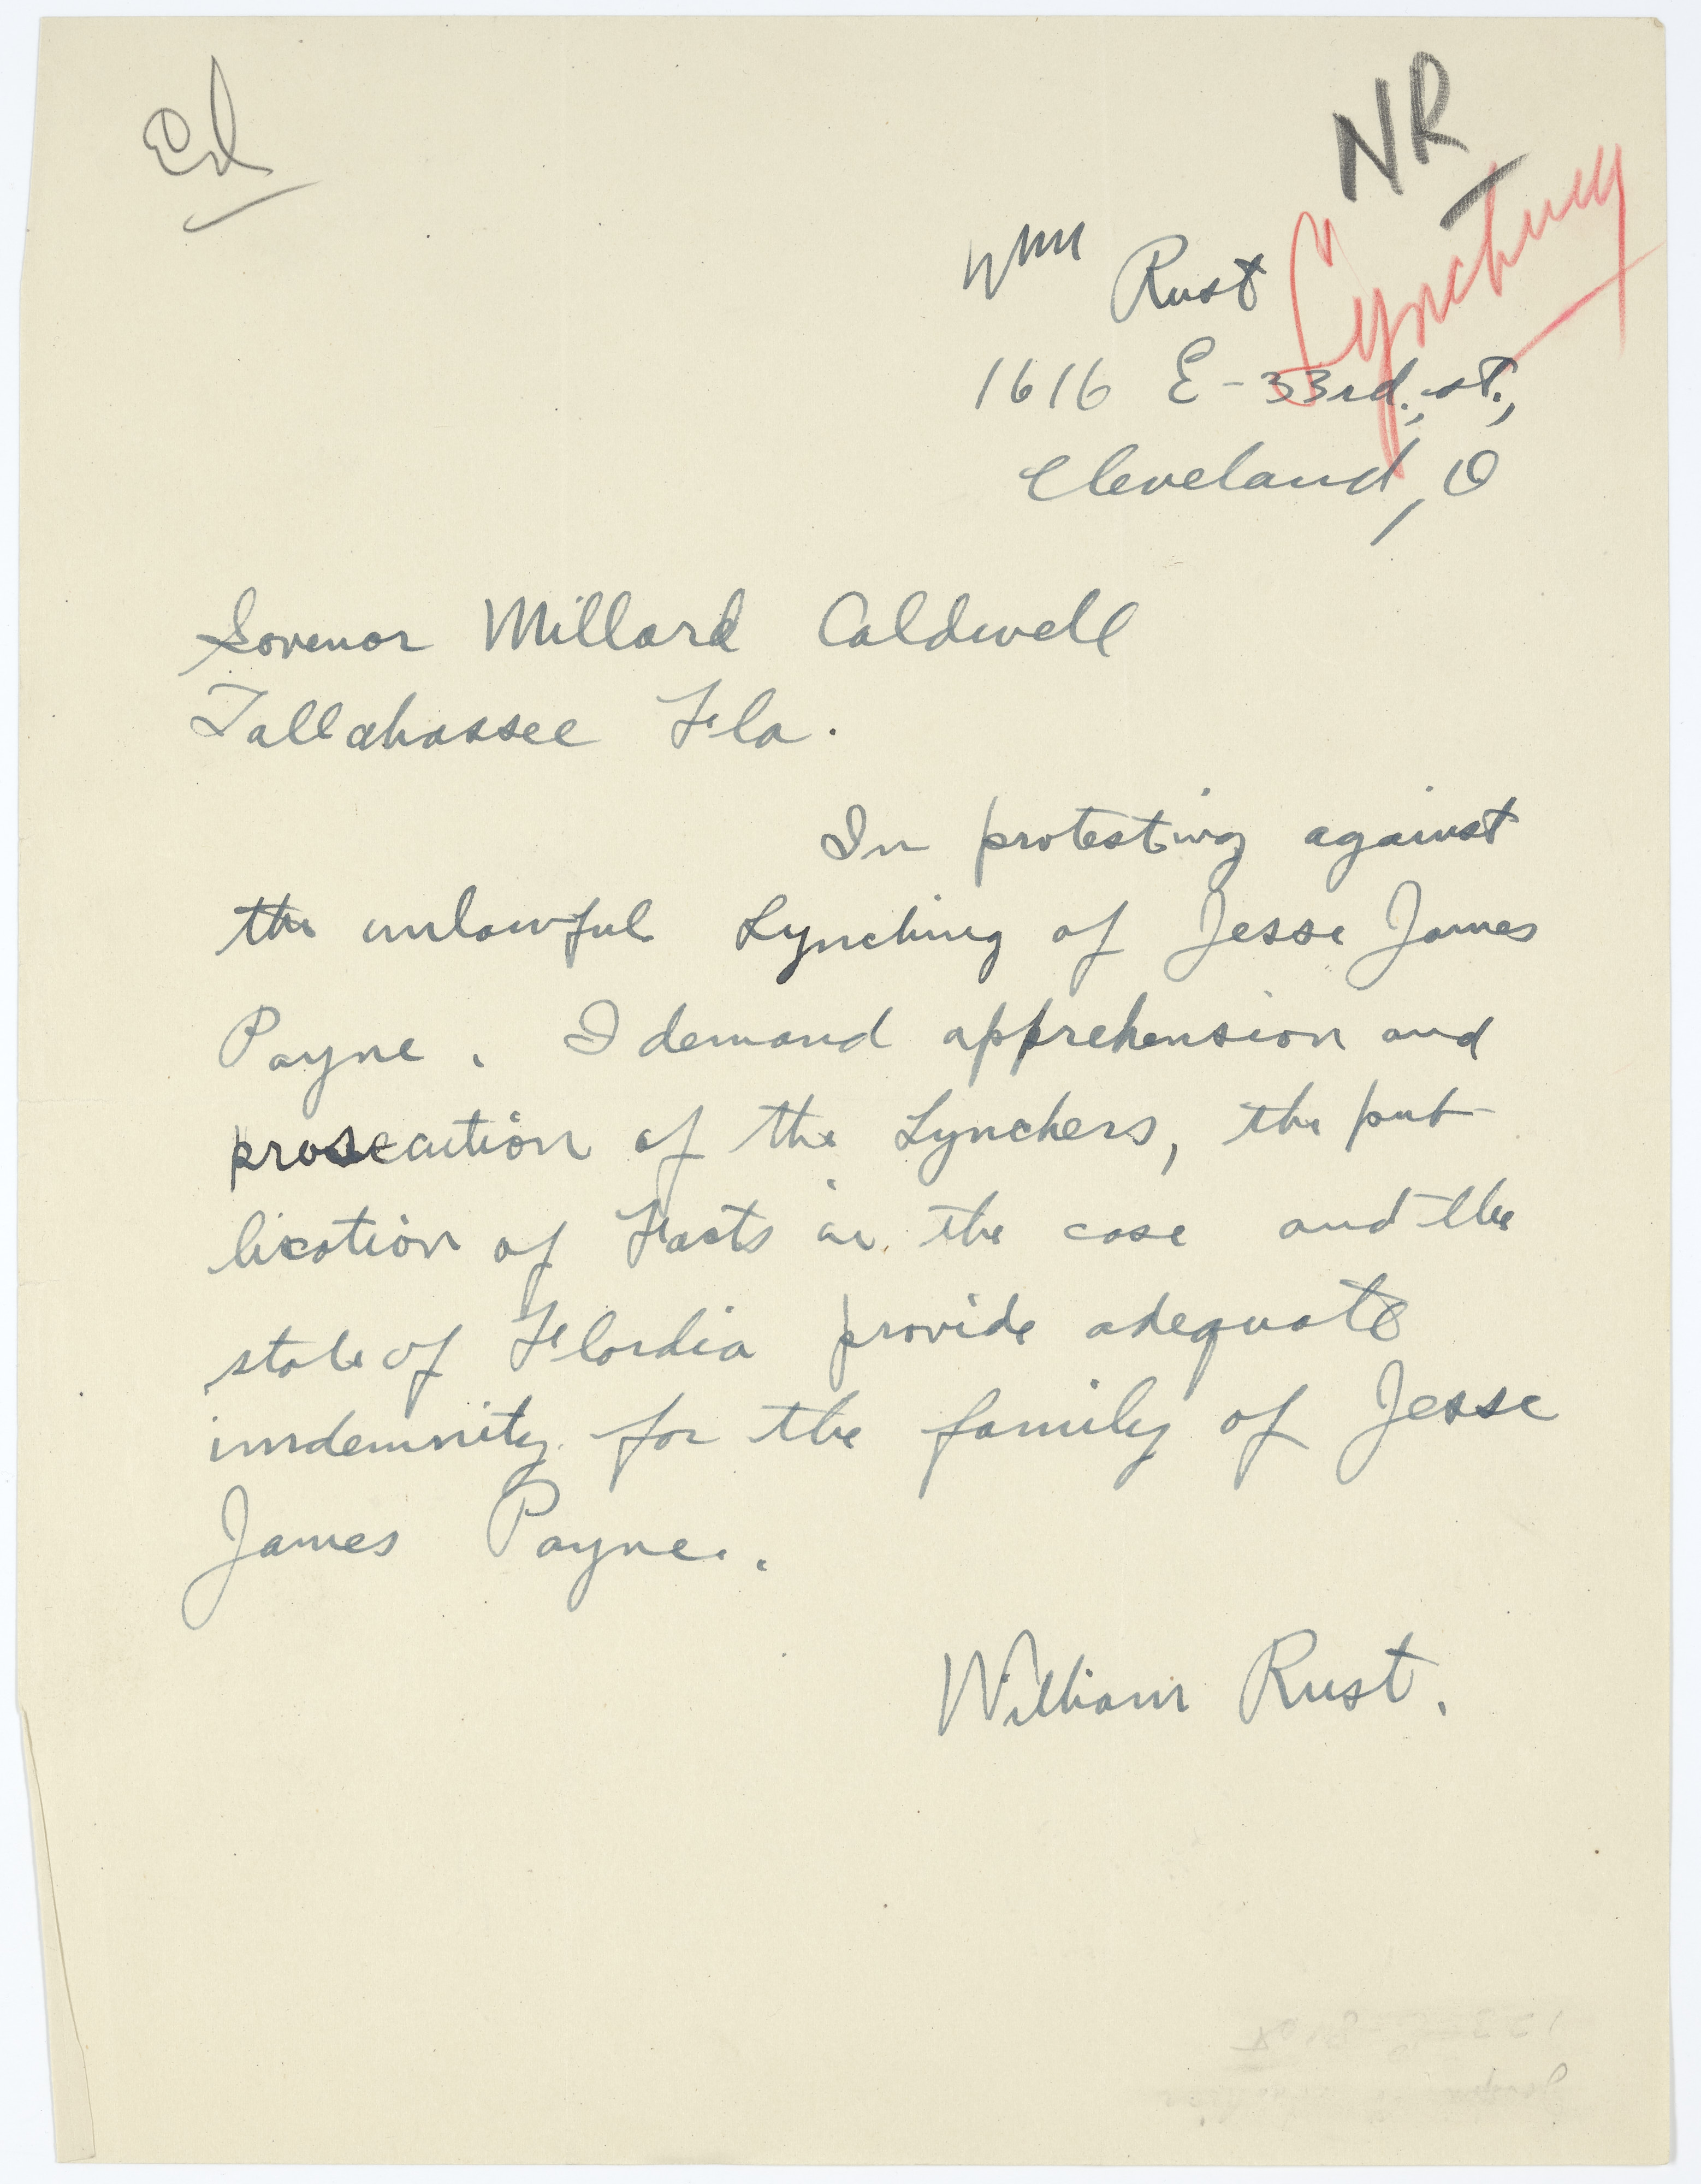 Ed
NR
Lynching
Wm Rust
1616 E-33rd., st.,
Cleveland, O
Govenor Millard Caldwell
Tallahassee Fla.
In protesting against
the unlawful Lynching of Jesse James
Payne. I demand apprehension and
prosecution of the Lynchers, the pub-
lication of Facts in the case and the
state of Flordia provide adequate
indemnity for the family of Jesse
James Payne.
William Rust.